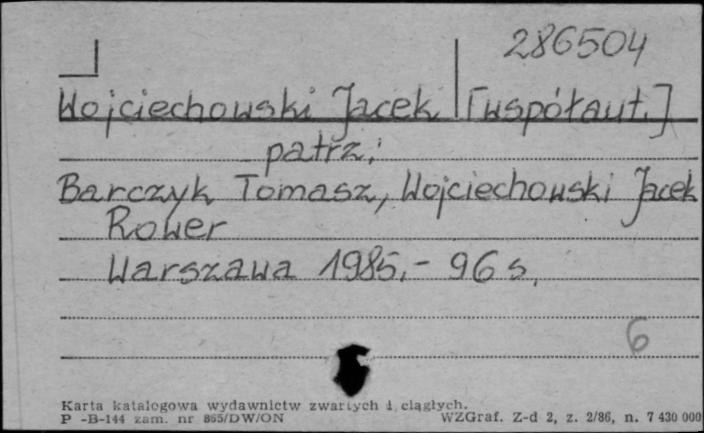 286504
Wojciechowski Jacek [współaut.]
patrz:
Barczyk Tomasz, Wojciechowski Jacek
Rower
Warszawa 1985.- 96 s.
6
Karta katalogowa wydawnictw zwartych i ciągłych.
P -B-144 zam. nr 865/DW/ON WZGraf. Z-d 2, z. 2/86, n. 7 430 000